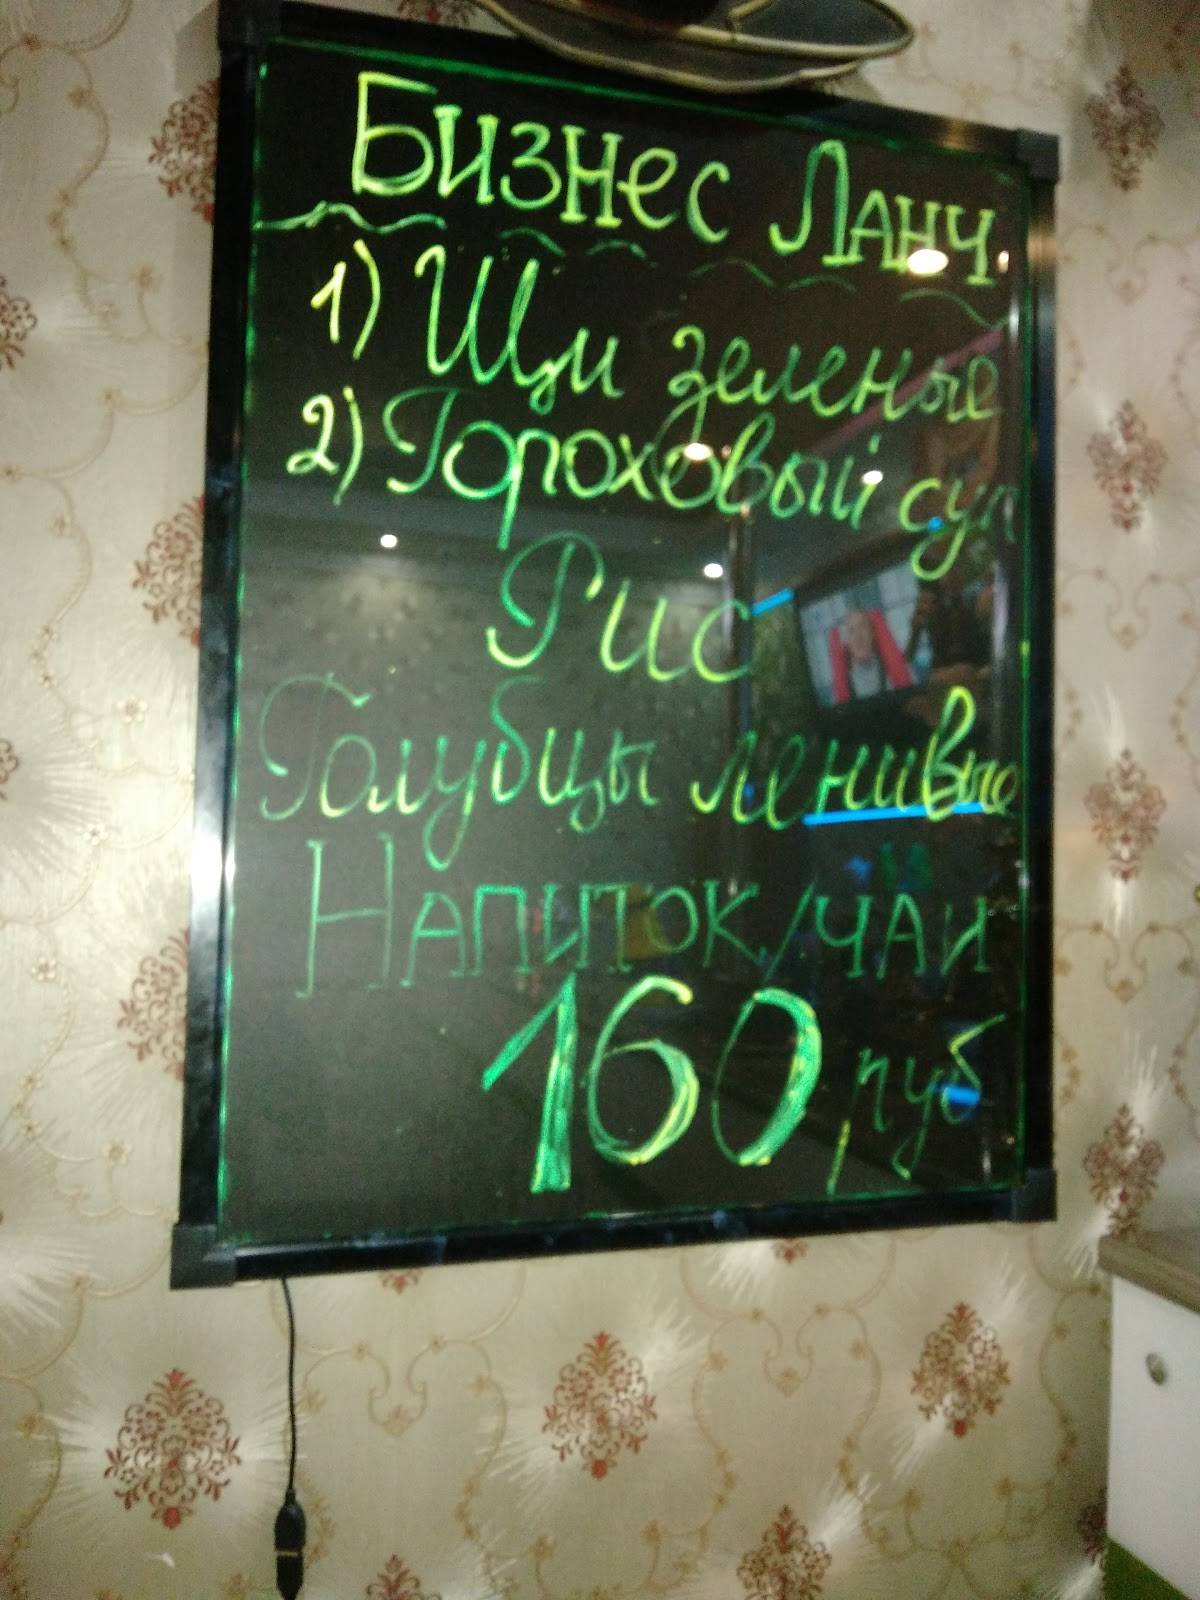 Бизнес Ланч
1) Щи зеленые
2) Гороховый суп
Рис
Голубцы ленивые
Напиток/чай
160 руб